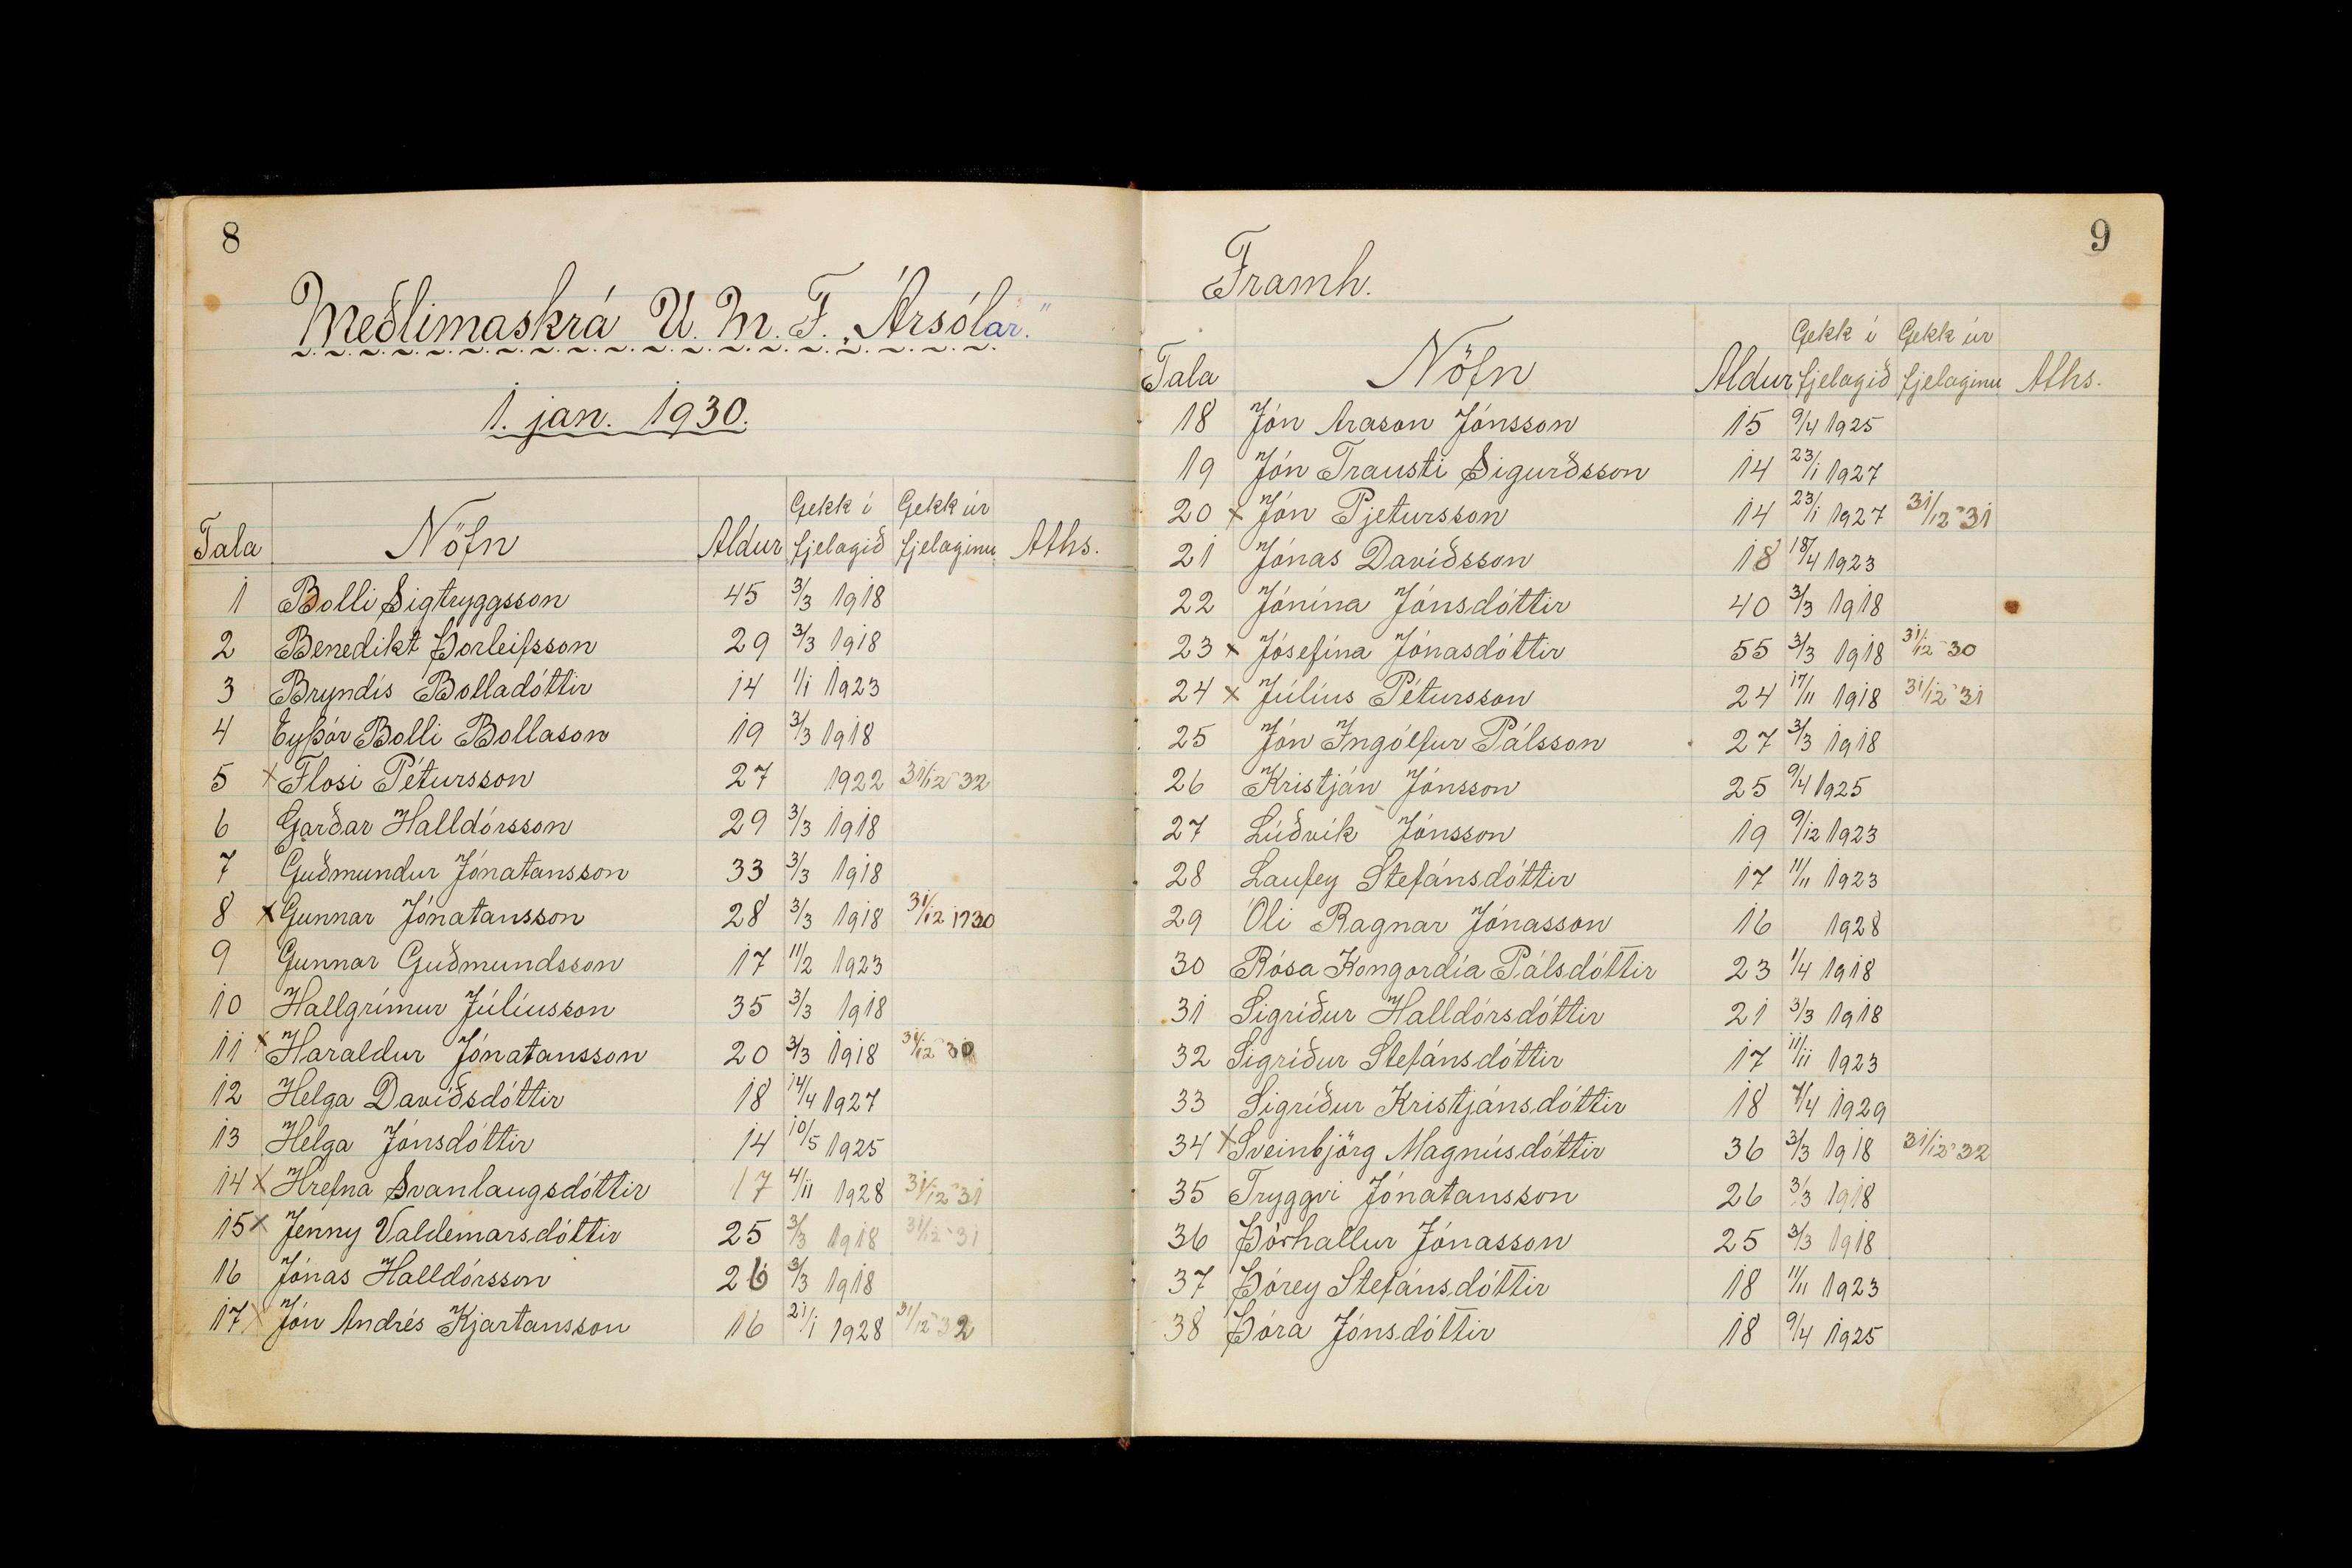 8
Meðlimaskrá U. M. F. „Ársólar."
1. jan. 1930.
Tala Nöfn Aldur Gekk í fjelagið Gekk úr fjelaginu Aths.
1 Bolli Sigtryggsson 45 3/3 1918
2 Benedikt Þorleifsson 29 3/3 1918
3 Bryndís Bolladóttir 14 1/1 1923
4 Eyþór Bolli Bollason 19 3/3 1918
5 x Flosi Pétursson 27 1922 31/12 32
6 Garðar Halldórsson 29 3/3 1918
7 Guðmundur Jónatansson 33 3/3 1918
8 x Gunnar Jónatansson 28 3/3 1918 31/12 1930
9 Gunnar Guðmundsson 17 11/2 1923
10 Hallgrímur Júlíusson 35 3/3 1918
11 x Haraldur Jónatansson 20 3/3 1918 31/12 30
12 Helga Davíðsdóttir 18 14/4 1927
13 Helga Jónsdóttir 14 10/5 1925
14 x Hrefna Svanlaugsdóttir 17 4/11 1928 31/12 31
15 x Jenny Valdemarsdóttir 25 3/3 1918 31/12 31
16 Jónas Halldórsson 26 3/3 1918
17 x Jón Andrés Kjartansson 16 21/1 1928 31/12 32
9
Framh.
Tala Nöfn Aldur Gekk í fjelagið Gekk úr fjelaginu Aths.
18 Jón Arason Jónsson 15 9/4 1925
19 Jón Trausti Sigurðsson 14 23/1 1927
20 x Jón Pjetursson 14 23/1 1927 31/12 31
21 Jónas Davíðsson 18 18/4 1923
22 Jónína Jónsdóttir 40 3/3 1918
23 x Jósefína Jónasdóttir 55 3/3 1918 31/12 30
24 x Júlíus Pétursson 24 17/11 1918 31/12 31
25 Jón Ingólfur Pálsson 27 3/3 1918
26 Kristján Jónsson 25 9/4 1925
27 Lúðvík Jónsson 19 9/12 1923
28 Laufey Stefánsdóttir 17 11/11 1923
29 Óli Ragnar Jónasson 16 1928
30 Rósa Kongordía Pálsdóttir 23 1/4 1918
31 Sigríður Halldórsdóttir 21 3/3 1918
32 Sigríður Stefánsdóttir 17 11/11 1923
33 Sigríður Kristjánsdóttir 18 7/4 1929
34 x Sveinbjörg Magnúsdóttir 36 3/3 1918 31/12 32
35 Tryggvi Jónatansson 26 3/3 1918
36 Þórhallur Jónasson 25 3/3 1918
37 Þórey Stefánsdóttir 18 11/11 1923
38 Þóra Jónsdóttir 18 9/4 1925